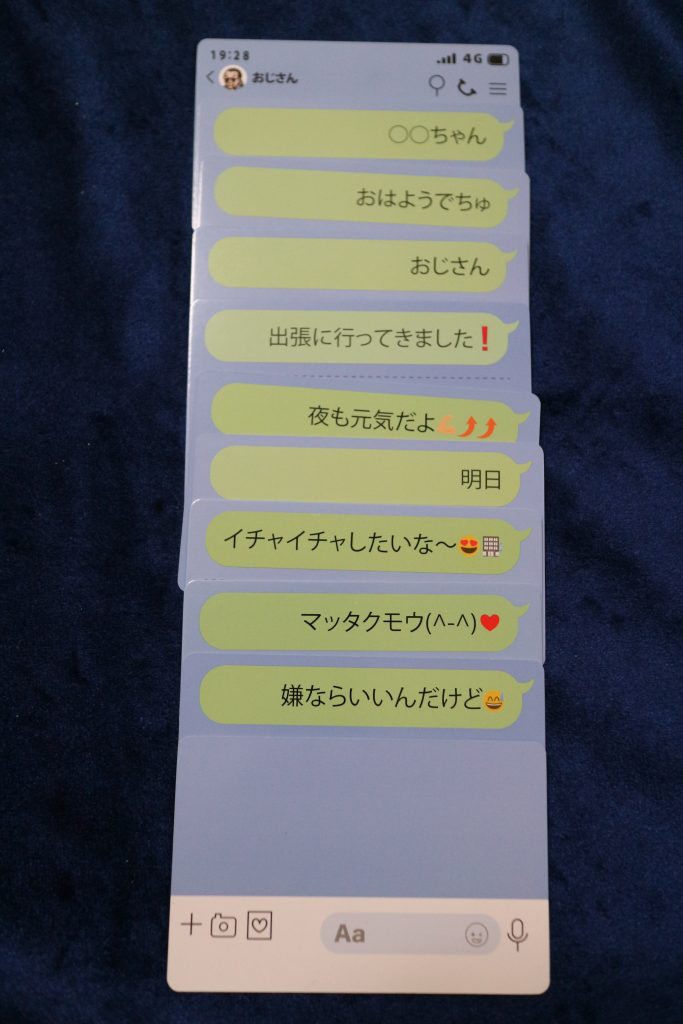 19:28 4G
おじさん
○○ちゃん
おはようでちゅ
おじさん
出張に行ってきました❗
夜も元気だよ💪🏻⤴⤴
明日
イチャイチャしたいな〜😍🏢
マッタクモウ(^-^)♥
嫌ならいいんだけど😅
Aa